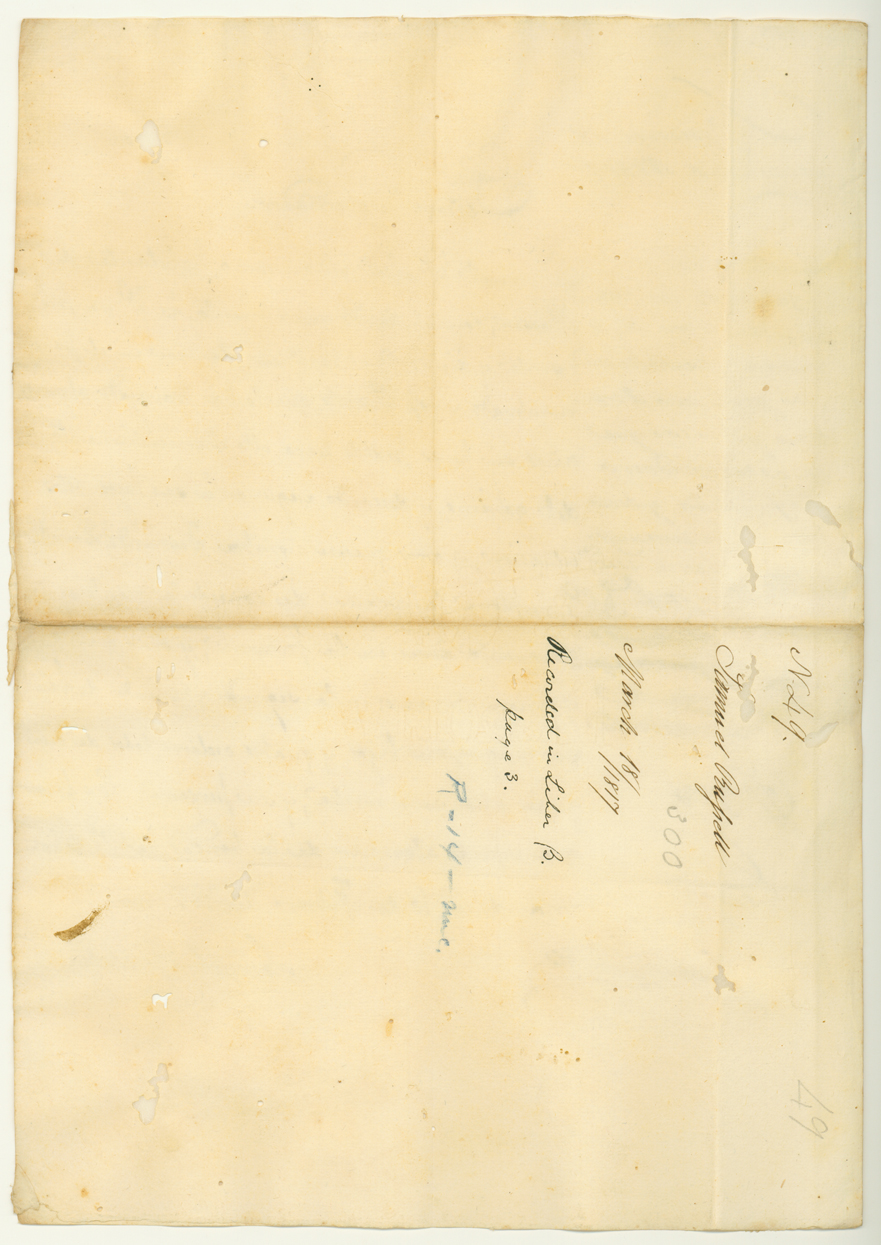 No 49.
49
Samuel Russell
300
March 18/1817
Recorded in Liber B.
page 3.
R-14-